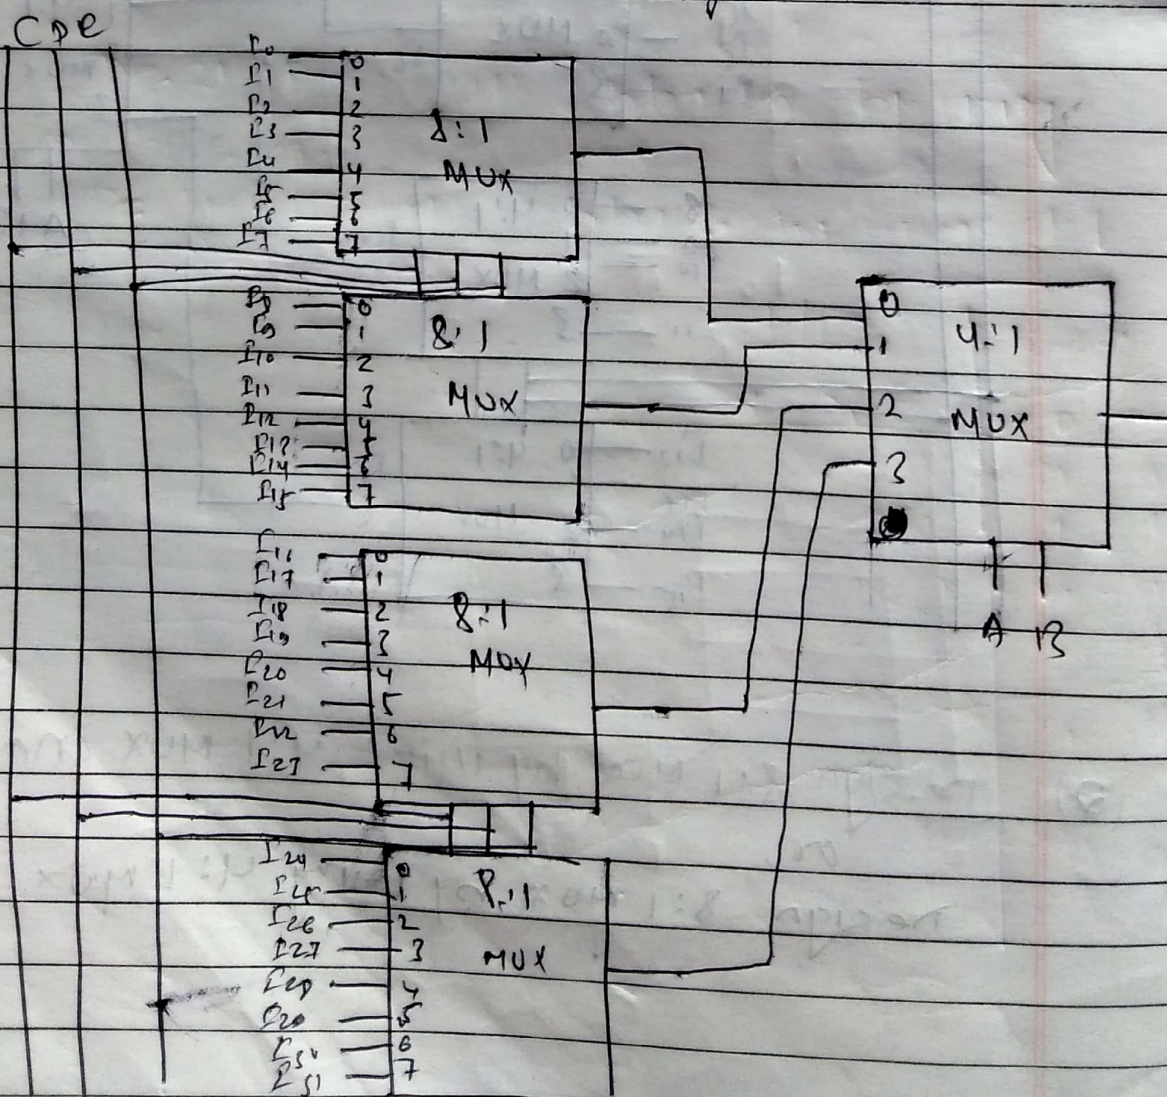 C D E
I0 0
I1 1
I2 2
I3 3
I4 4
I5 5
I6 6
I7 7
8:1
MUX
I8 0
I9 1
I10 2
I11 3
I12 4
I13 5
I14 6
I15 7
8:1
MUX
I16 0
I17 1
I18 2
I19 3
I20 4
I21 5
I22 6
I23 7
8:1
MUX
I24 0
1
I26 2
I27 3
I28 4
5
I30 6
I31 7
8:1
MUX
0
1
2
3
4:1
MUX
A B